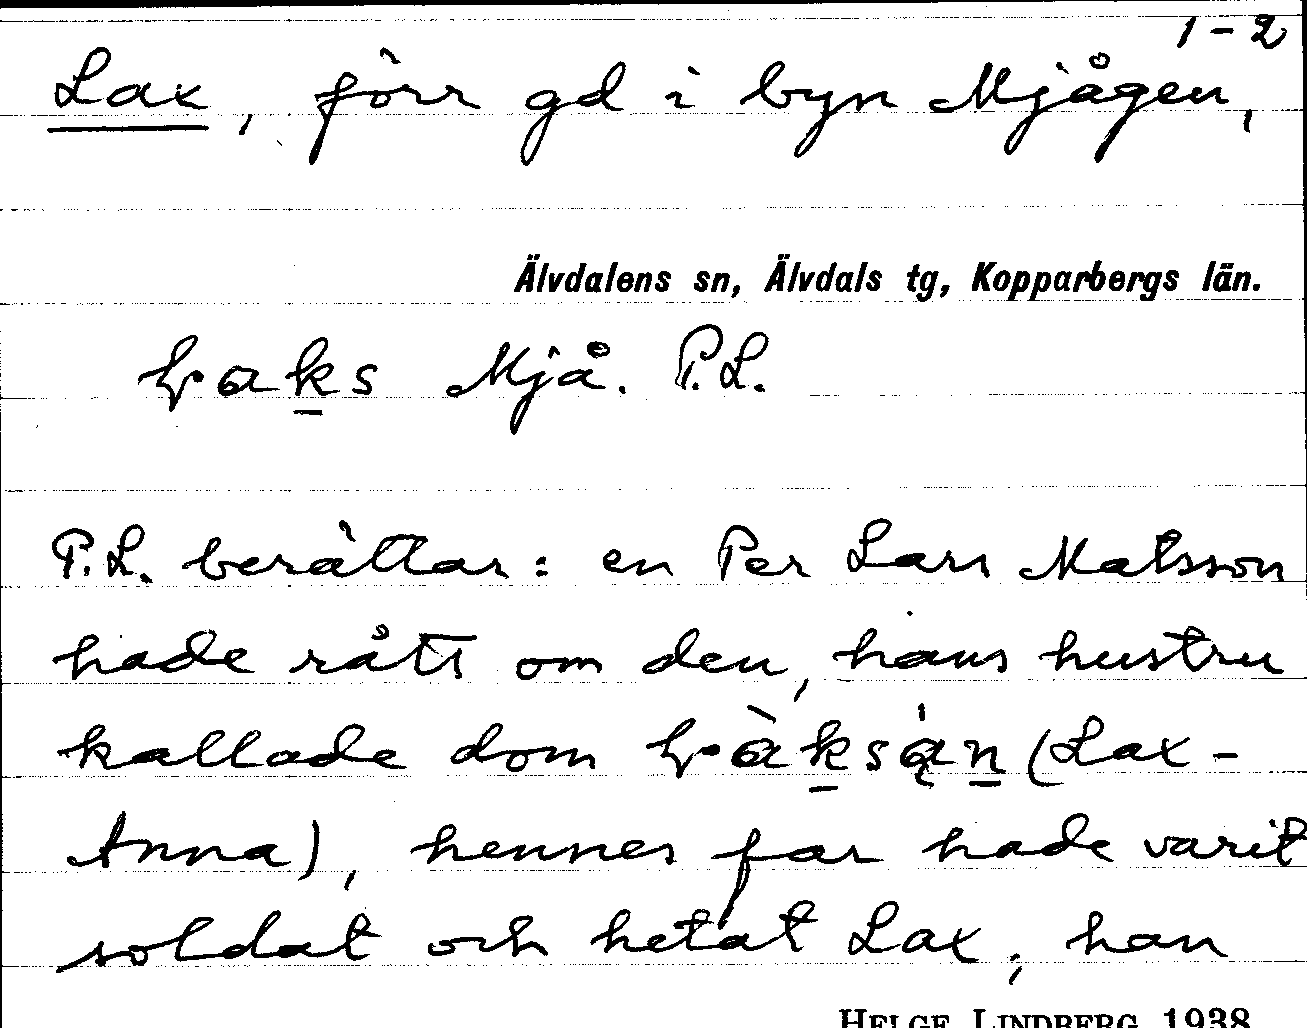 1-2
Lax, förr gd i byn Mjågen,
Älvdalens sn, Älvdals tg, Kopparbergs län.
Mjå. P.L.
P.L. berättar: en Per Lars Matsson
hade rått om den, hans hustru
kallade dom (Lax-
Anna), hennes far hade varit
soldat och hetat Lax; han
HELGE LINDBERG 1938